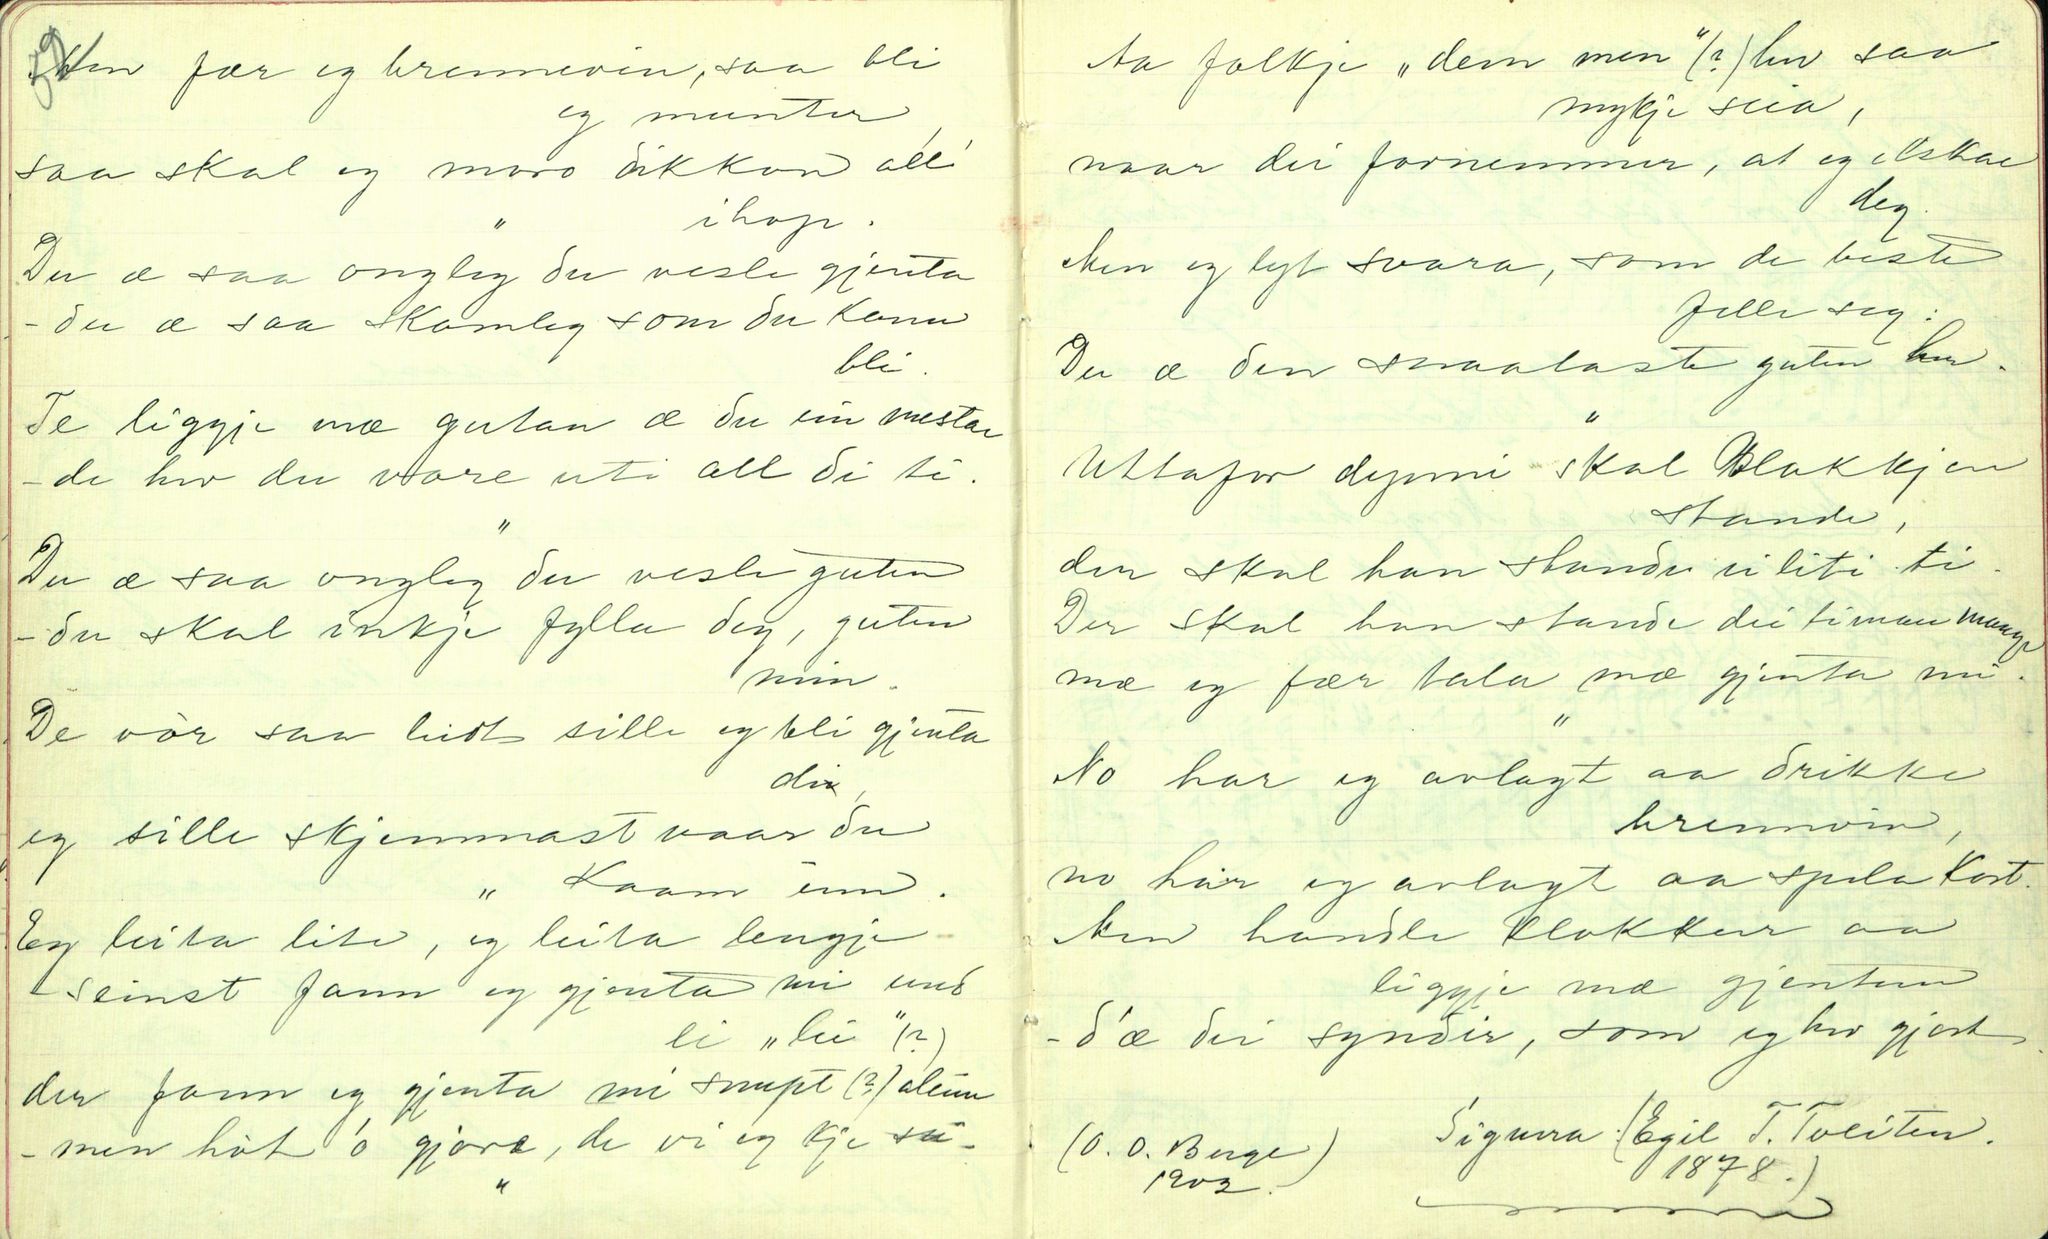 Men fær eg brennevin, saa bli
eg munter,
saa skal eg moro dikkon all'
ihop.
"
Du æ saa ongleg du vesle gjenta
- du æ saa skamleg som du kann
bli.
Te liggje mæ gutan æ du ein mestar
- de hev du vore uti all di ti.
"
Du æ saa ongleg du vesle guten
- du skal inkje fylla deg, guten
min.
De vór saa leidt sille eg bli gjenta
di,
eg sille skjemmast naar du
kaam inn.
"
Eg leita lite, eg leita lengje
- seinst fann eg gjenta mi und
ei "lii" (?)
der fann eg gjenta mi snupt (?) aleine
- men hót ó gjore, de vi eg kje sei -
"
Aa folkje "dem men" (?) hev saa
mykje seia,
naar dei fornemmer, at eg elskar
deg.
Men eg lyt svara, som de beste
felle seg:
Du æ den snaalaste guten her.
"
Uttafor dynni skal Blakkjen
stande,
der skal han stande ei liti ti.
Der skal han stande dei timan mange
mæ eg fær tala mæ gjenta mi.
"
No har eg avlagt aa drikke
brennvin,
no har eg avlagt aa spela kort.
Men handle klokkur aa
liggje mæ gjentun
- d'æ dei syndir, som eg hev gjort.
(O. O. Berge
1902.)
Sigurra (Egil T. Tveiten.
1878.)